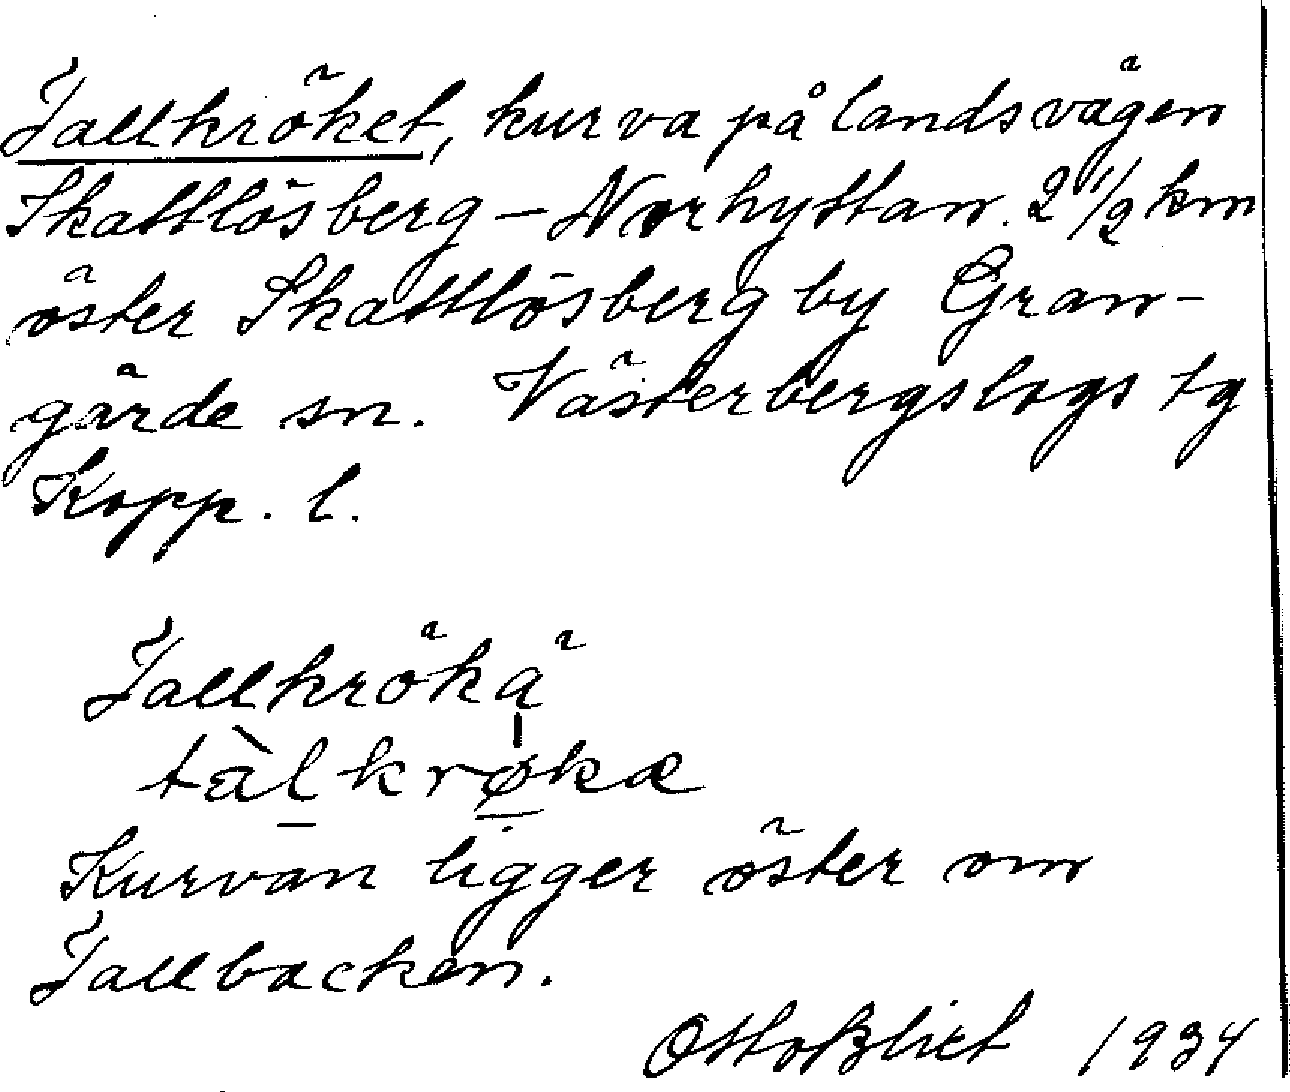 Tallkröket, kurva på landsvägen
Skattlösberg – Norhyttan. 2 1/2 km
öster Skattlösberg by Gran-
gärde sn. Västerbergslags tg
Kopp. l.
Tallkrökä
tàlkrøkæ
Kurvan ligger öster om
Tallbacken.
Otto Blixt 1934